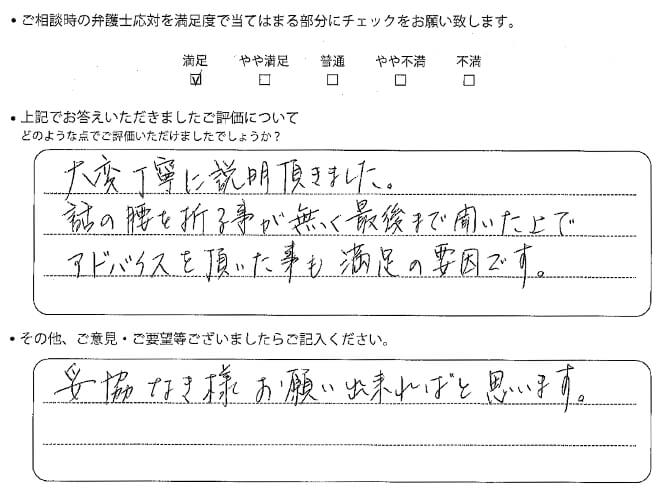 • ご相談時の弁護士応対を満足度で当てはまる部分にチェックをお願い致します。
満足 やや満足 普通 やや不満 不満
☑ □ □ □ □
• 上記でお答えいただきましたご評価について
どのような点でご評価いただけましたでしょうか？
大変丁寧に説明頂きました。
話の腰を折る事が無く最後まで聞いた上で
アドバイスを頂いた事も満足の要因です。
• その他、ご意見・ご要望等ございましたらご記入ください。
妥協なき様お願い出来ればと思います。